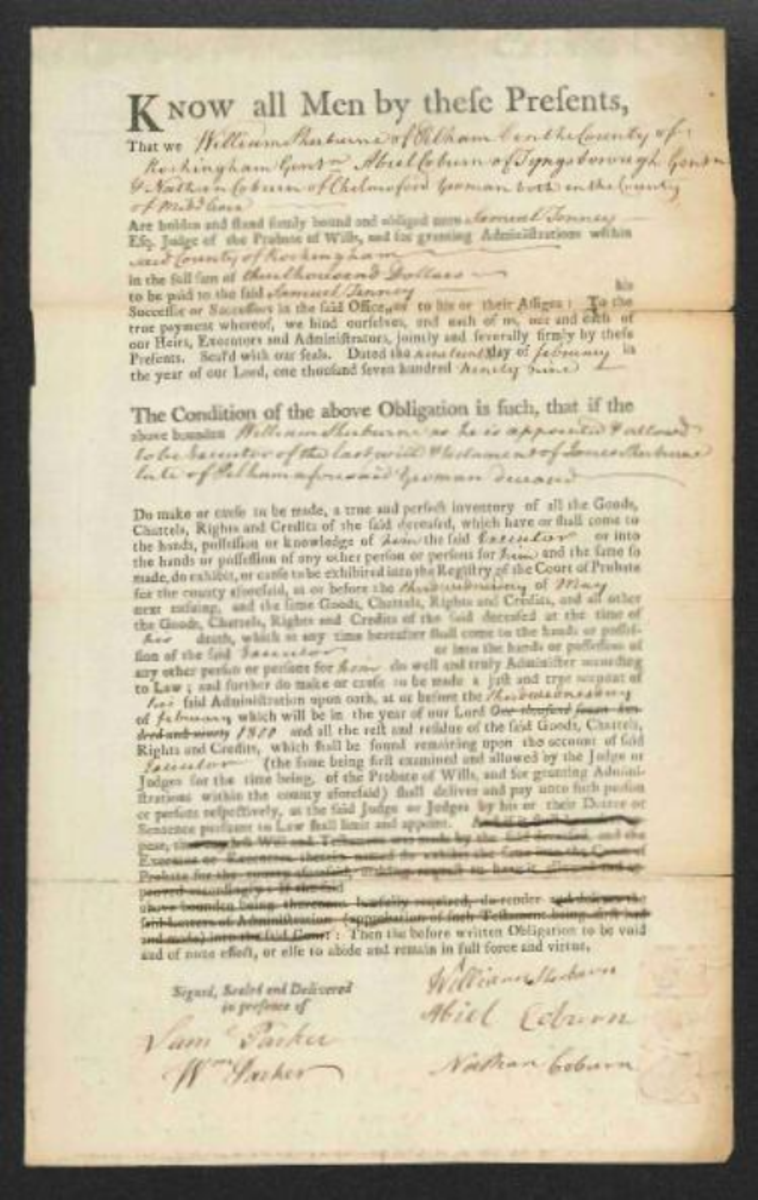 KNOW all Men by theſe Preſents,
That we William Sherburne of Pelham in the County of
Rockingham Gentn Abiel Coburn of Tyngsborough Gentn
& Nathan Coburn of Chelmsford Yeoman both in the County
of Middlesex
Are holden and ſtand firmly bound and obliged unto Samuel Tenney
Eſq. Judge of the Probate of Wills, and for granting Adminiſtrations within
said County of Rockingham
in the full ſum of thousand Dollars
to be paid to the ſaid Samuel Tenney his
Succeſſor or Succeſſors in the ſaid Office, or to his or their Aſſigns: To the
true payment whereof, we bind ourſelves, and each of us, our and each of
our Heirs, Executors and Adminiſtrators, jointly and ſeverally firmly by theſe
Preſents. Seal'd with our ſeals. Dated the day of february in
the year of our Lord, one thouſand ſeven hundred ninety nine
The Condition of the above Obligation is ſuch, that if the
above bounden William Sherburne as he is appointed & allowed
to be Executor of the last will & testament of Sherburne
late of Pelham aforesaid Yeoman deceasd
Do make or cauſe to be made, a true and perfect inventory of all the Goods,
Chattels, Rights and Credits of the ſaid deceaſed, which have or ſhall come to
the hands, poſſeſſion or knowledge of him the ſaid Executor or into
the hands or poſſeſſion of any other perſon or perſons for him and the ſame ſo
made, do exhibit, or cauſe to be exhibited into the Regiſtry of the Court of Probate
for the county aforeſaid, at or before the third wednesday of May
next enſuing, and the ſame Goods, Chattels, Rights and Credits, and all other
the Goods, Chattels, Rights and Credits of the ſaid deceaſed at the time of
his death, which at any time hereafter ſhall come to the hands or poſſeſ-
ſion of the ſaid Executor or into the hands or poſſeſſion of
any other perſon or perſons for him do well and truly Adminiſter according
to Law; and further do make or cauſe to be made a juſt and true account of
his ſaid Adminiſtration upon oath, at or before the third wednesday
of february which will be in the year of our Lord One thouſand ſeven hun-
dred and ninety 1800 and all the reſt and reſidue of the ſaid Goods, Chattels,
Rights and Credits, which ſhall be found remaining upon the account of ſaid
Executor (the ſame being firſt examined and allowed by the Judge or
Judges for the time being, of the Probate of Wills, and for granting Admini-
ſtrations within the county aforeſaid) ſhall deliver and pay unto ſuch perſon
or perſons reſpectively, as the ſaid Judge or Judges by his or their Decree or
Sentence purſuant to Law ſhall limit and appoint. And if it ſhall
pear, laſt Will and Teſtament was made by the ſaid deceaſed, and the
Executor or Executors therein named do exhibit the ſame into the Court of
Probate for the county aforeſaid, making requeſt to have it allowed and ap-
proved accordingly: If the ſaid
above bounden being thereunto lawfully required, do render and deliver the
ſaid Letters of Adminiſtration (approbation of ſuch Teſtament being firſt had
and made) into the ſaid Court: Then the before written Obligation to be void
and of none effect, or elſe to abide and remain in full force and virtue.
Signed, Sealed and Delivered
in preſence of
Saml Parker
Wm Parker
William Sherburn
Abiel Coburn
Nathan Coburn